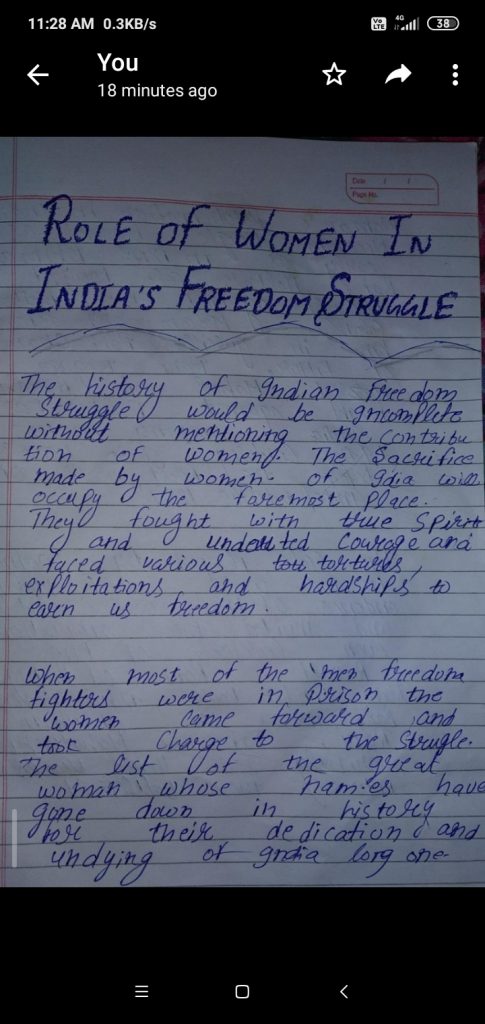 11:28 AM 0.3KB/s
Vo LTE 4G 38
You
18 minutes ago
Date / /
Page No.
ROLE OF WOMEN IN
INDIA'S FREEDOM STRUGGLE
The history of Indian Freedom
Struggle would be Incomplete
without mentioning the contribu
tion of women. The Sacrifice
made by women of Idia will
occupy the foremost place.
They fought with true Spirit
and undeuted Courage and
faced various tou tortures,
exploitations and hardships to
earn us freedom.
When most of the men freedom
fighters were in Prison the
women came forward and
took Charge to the Strugle.
The list of the great
woman whose names have
gone down in history
for their dedication and
undying of India long one-